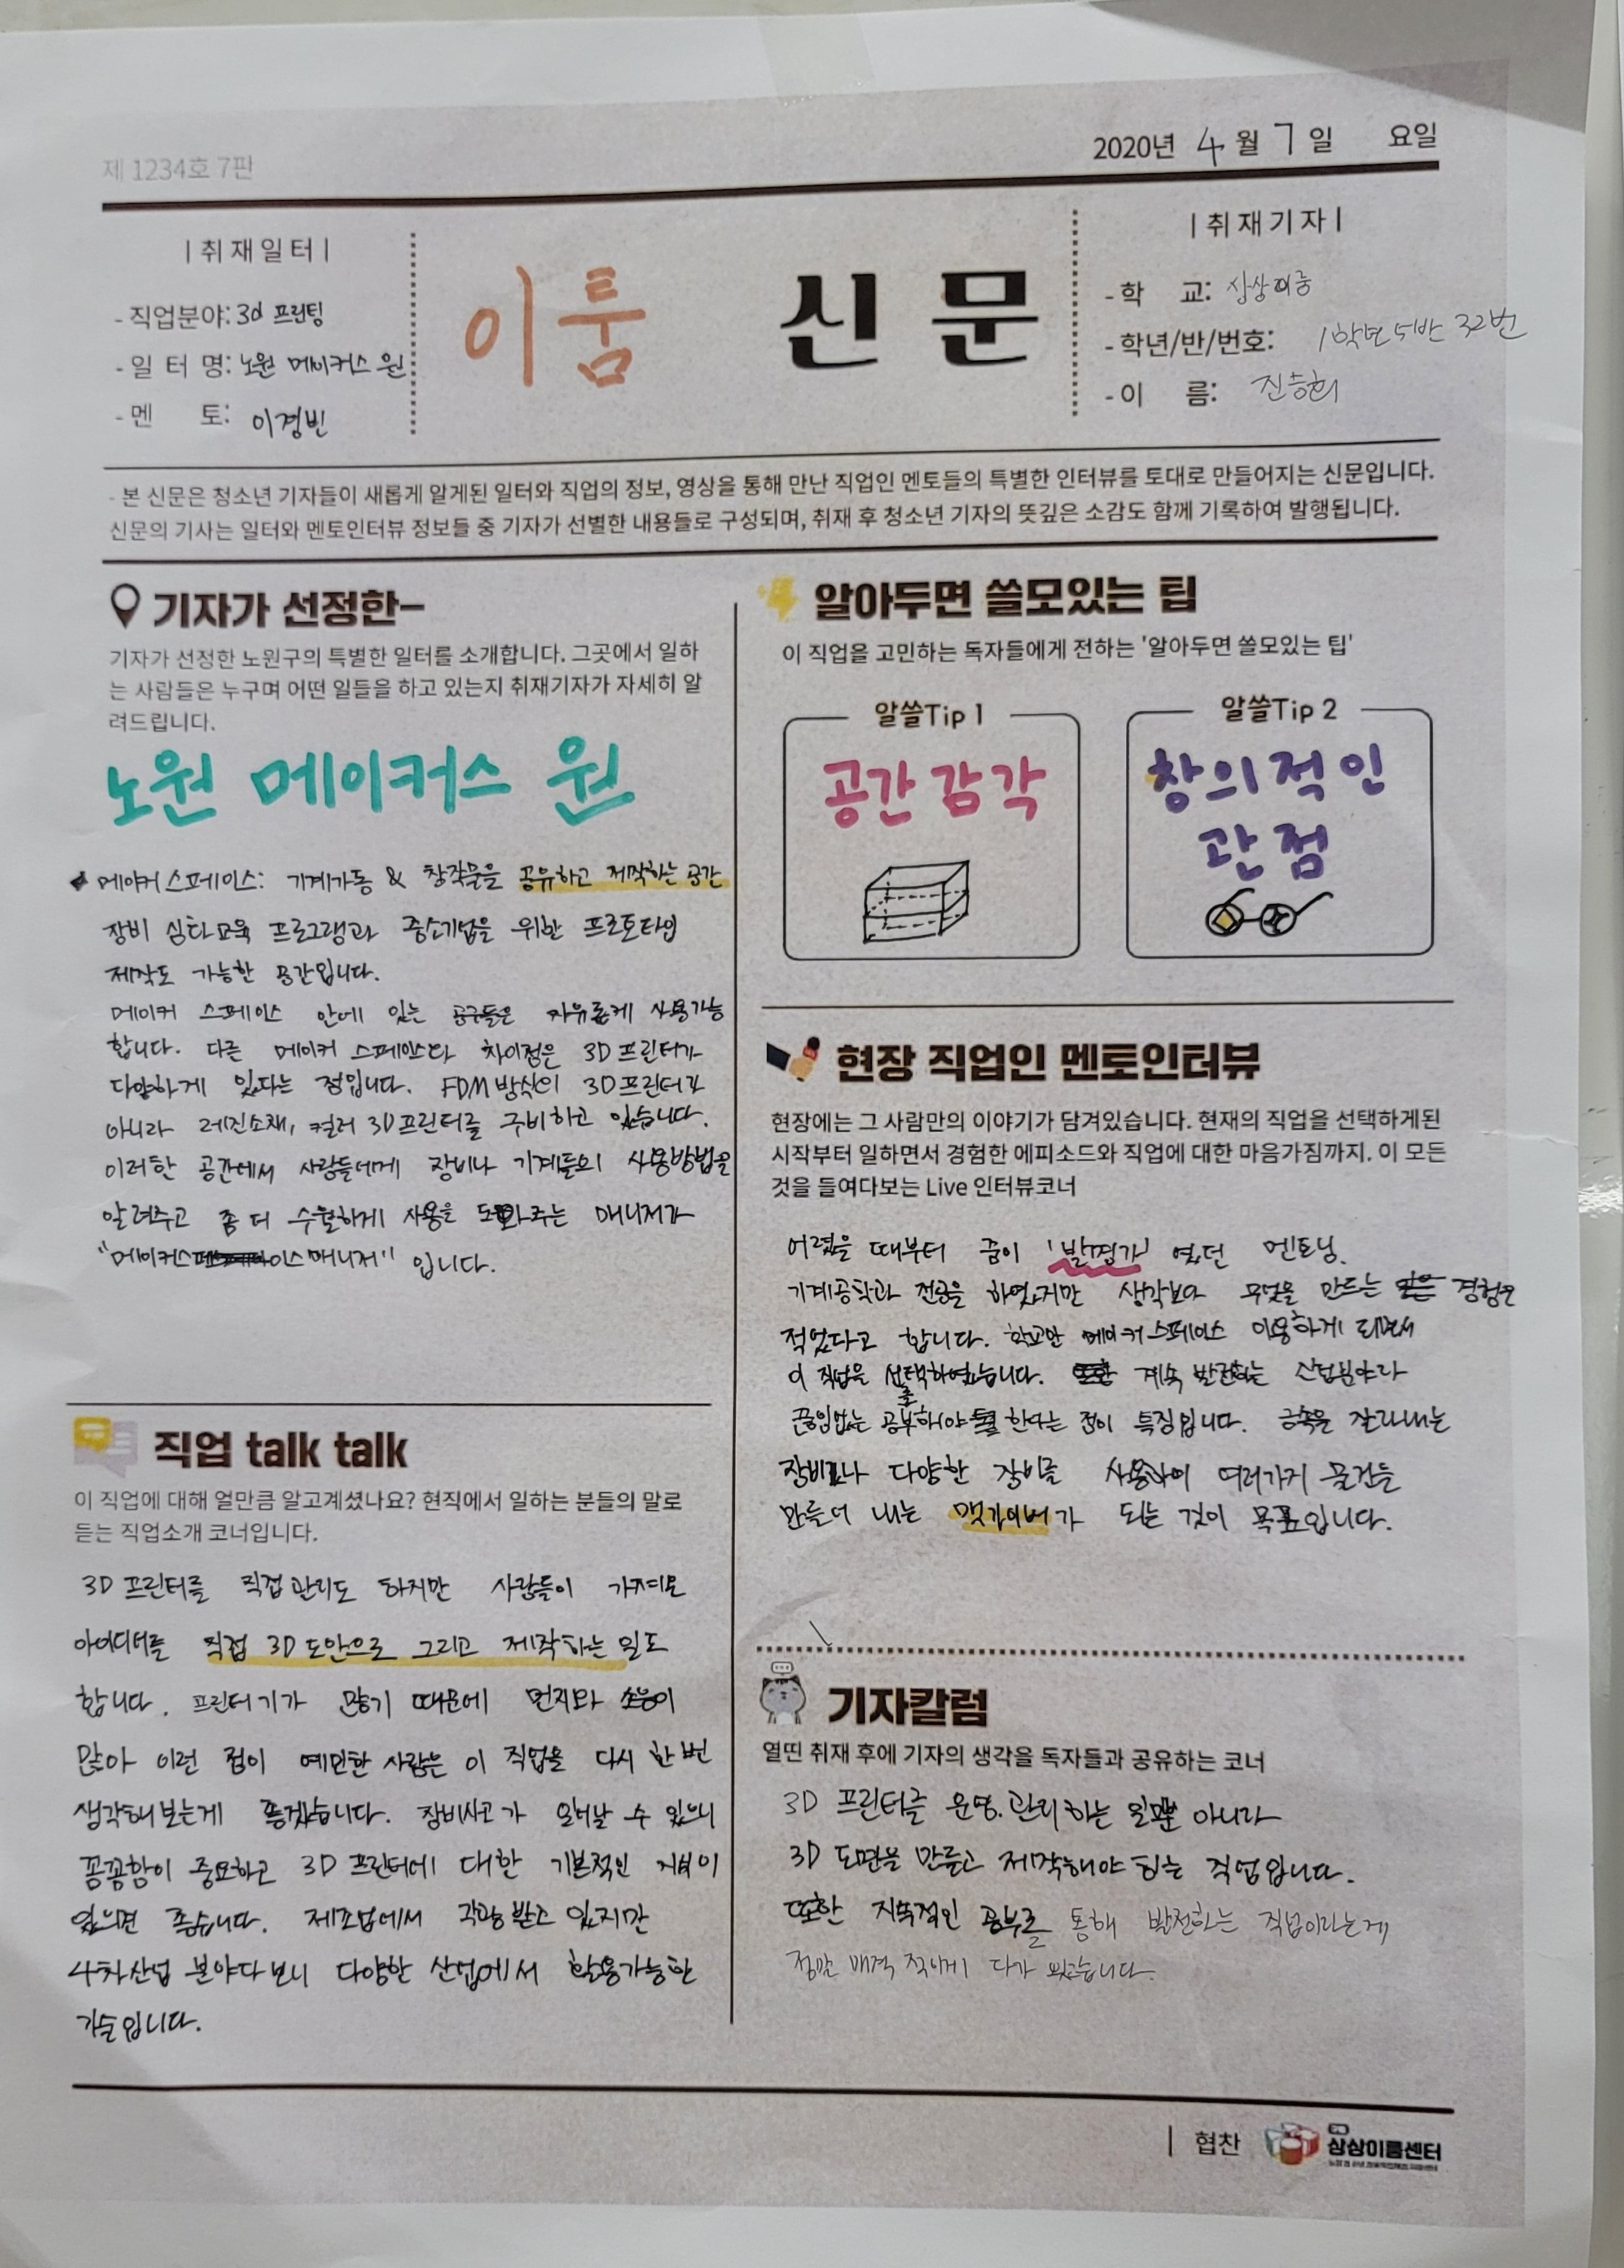 제 1234호 7판
2020년 4월 7일 요일
| 취재일터 |
- 직업분야: 3d 프린팅
- 일 터 명: 노원 메이커스 원
- 멘 토: 이경빈
이룸 신문
| 취재기자 |
- 학 교: 상상이룸
- 학년/반/번호: 1학년 5반 32번
- 이 름: 진승희
- 본 신문은 청소년 기자들이 새롭게 알게된 일터와 직업의 정보, 영상을 통해 만난 직업인 멘토들의 특별한 인터뷰를 토대로 만들어지는 신문입니다.
신문의 기사는 일터와 멘토인터뷰 정보들 중 기자가 선별한 내용들로 구성되며, 취재 후 청소년 기자의 뜻깊은 소감도 함께 기록하여 발행됩니다.
기자가 선정한–
기자가 선정한 노원구의 특별한 일터를 소개합니다. 그곳에서 일하
는 사람들은 누구며 어떤 일들을 하고 있는지 취재기자가 자세히 알
려드립니다.
노원 메이커스 원
메이커 스페이스: 기계가동 & 창작물을 공유하고 제작하는 공간
장비 심화교육 프로그램과 중소기업을 위한 프로토타입
제작도 가능한 공간입니다.
메이커 스페이스 안에 있는 공구들은 자유롭게 사용가능
합니다. 다른 메이커 스페이스와 차이점은 3D 프린터가
다양하게 있다는 점입니다. FDM 방식의 3D프린터가
아니라 레진소재, 컬러 3D프린터를 구비하고 있습니다.
이러한 공간에서 사람들에게 장비나 기계들의 사용방법을
알려주고 좀 더 수월하게 사용을 도와주는 매니저가
"메이커스페이스매니저" 입니다.
직업 talk talk
이 직업에 대해 얼만큼 알고계셨나요? 현직에서 일하는 분들의 말로
듣는 직업소개 코너입니다.
3D 프린터를 직접 관리도 하지만 사람들이 가져온
아이디어를 직접 3D 도안으로 그리고 제작하는 일도
합니다. 프린터기가 많기 때문에 먼지와 소음이
많아 이런 점이 예민한 사람은 이 직업을 다시 한번
생각해보는게 좋겠습니다. 장비사고가 일어날 수 있으니
꼼꼼함이 중요하고 3D 프린터에 대한 기본적인 지식이
있으면 좋습니다. 제조업에서 각광 받고 있지만
4차산업 분야다 보니 다양한 산업에서 활용가능한
기술입니다.
알아두면 쓸모있는 팁
이 직업을 고민하는 독자들에게 전하는 '알아두면 쓸모있는 팁'
알쓸Tip 1
공간 감각
알쓸Tip 2
창의적인
관점
현장 직업인 멘토인터뷰
현장에는 그 사람만의 이야기가 담겨있습니다. 현재의 직업을 선택하게된
시작부터 일하면서 경험한 에피소드와 직업에 대한 마음가짐까지. 이 모든
것을 들여다보는 Live 인터뷰코너
어렸을 때부터 꿈이 '발명가' 였던 멘토님.
기계공학과 전공을 하였지만 생각보다 무엇을 만드는 경험은
적었다고 합니다. 학교안 메이커스페이스 이용하게 되면서
이 직업을 선택하였습니다. 계속 발전하는 산업분야라
끊임없는 공부를 해야 한다는 점이 특징입니다. 금속을 잘라내는
장비나 다양한 장비를 사용하여 여러가지 물건을
만들어 내는 맥가이버가 되는 것이 목표입니다.
기자칼럼
열띤 취재 후에 기자의 생각을 독자들과 공유하는 코너
3D 프린터를 운영. 관리하는 일뿐 아니라
3D 도면을 만들고 제작해야 하는 직업입니다.
또한 지속적인 공부를 통해 발전하는 직업이라는게
정말 매력 적이게 다가 왔습니다.
| 협찬 상상이룸센터